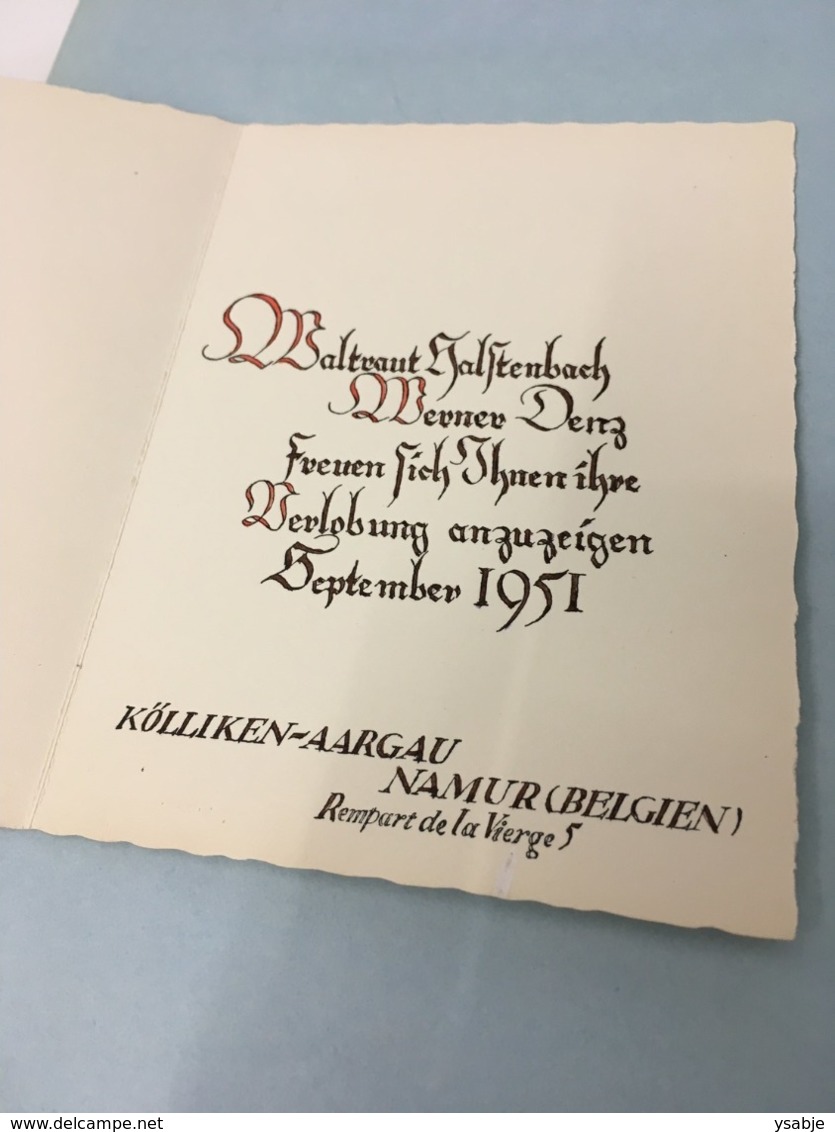 Waltraut Halstenbach
Werner Denz
freuen sich Ihnen ihre
Verlobung anzuzeigen
September 1951
KÖLLIKEN-AARGAU
NAMUR (BELGIEN)
Rempart de la Vierge 5
www.delcampe.net
ysabje